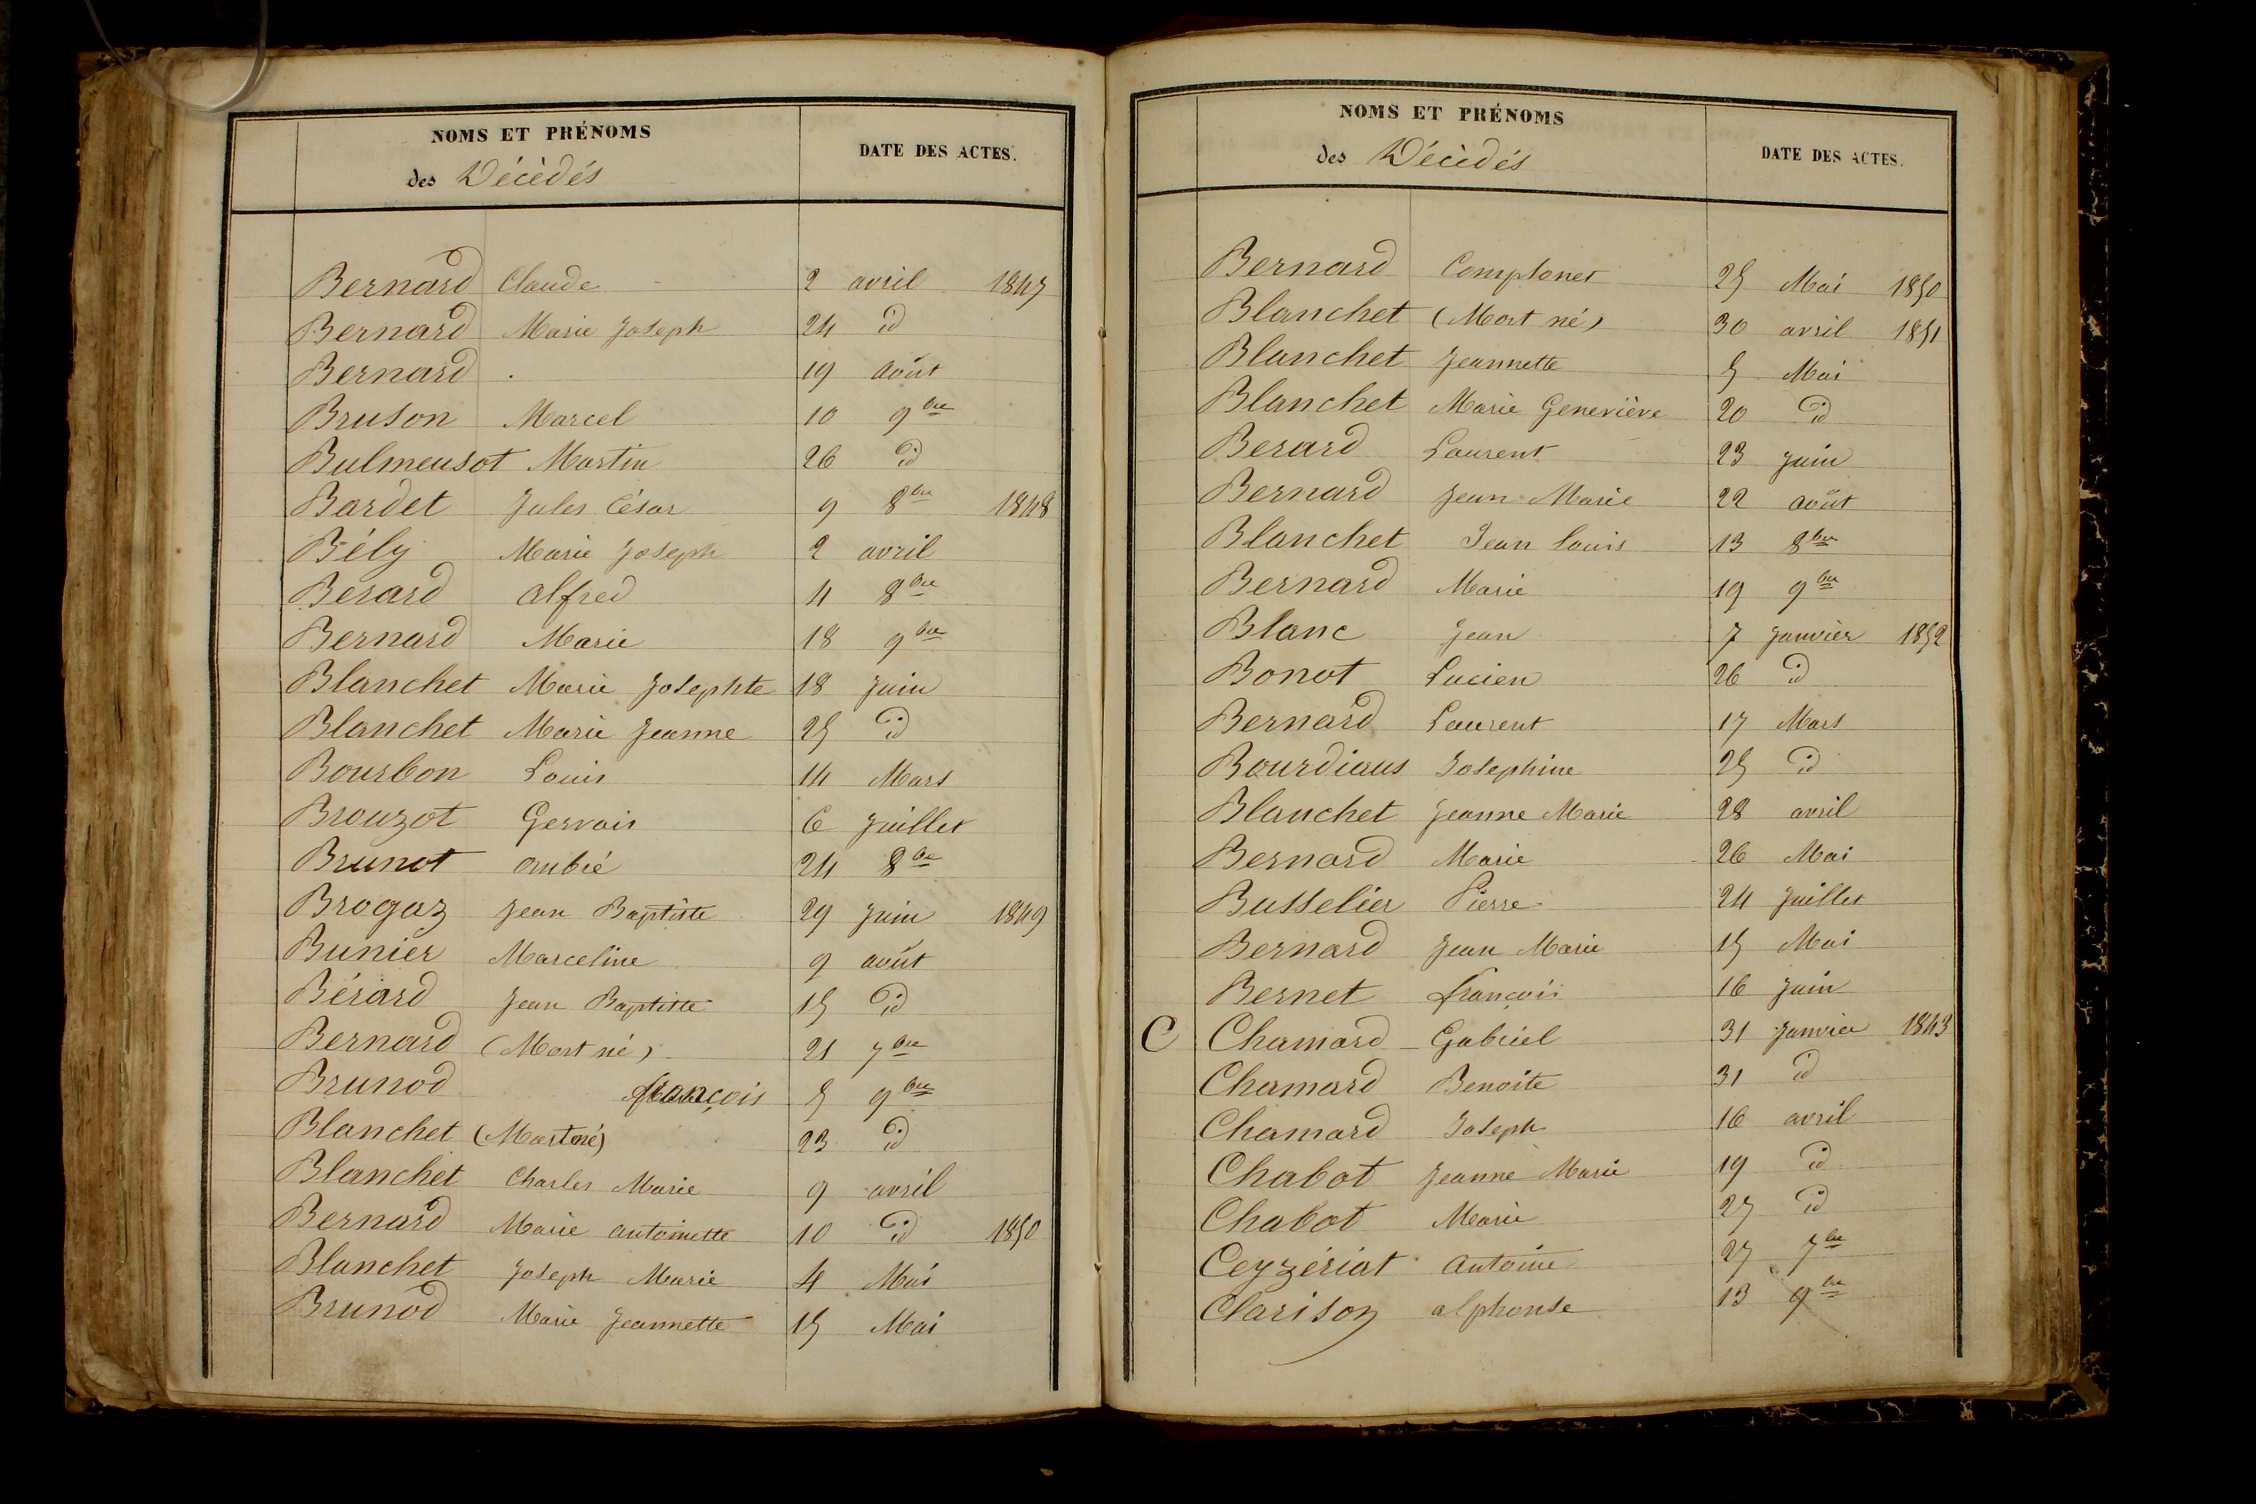 NOMS ET PRÉNOMS
des Décèdés
DATE DES ACTES.
Bernard Claude 2 avril 1847
Bernard Marie Joseph 24 id
Bernard 19 août
Bruson Marcel 10 9bre
Bulmeusot Martin 26 id
Bardet Jules César 9 8bre 1848
Bély Marie Joseph 2 avril
Berard alfred 4 8bre
Bernard Marie 18 9bre
Blanchet Marie Josephte 18 Juin
Blanchet Marie Jeanne 25 id
Bourbon Louis 14 Mars
Brouzot Gervais 6 Juillet
Brunot 24 8bre
Brogaz Jean Baptiste 29 Juin 1849
Bunier Marceline 9 août
Bérard Jean Baptiste 15 id
Bernard (Mort né) 21 7bre
Brunod françois 5 9bre
Blanchet (Mort né) 23 id
Blanchet Charles Marie 9 avril
Bernard Marie antoinette 10 id 1850
Blanchet Joseph Marie 4 Mai
Brunod Marie Jeannette 15 Mai
NOMS ET PRÉNOMS
des Décèdés
DATE DES ACTES.
Bernard 25 Mai 1850
Blanchet (Mort né) 30 avril 1851
Blanchet Jeannette 5 Mai
Blanchet Marie Geneviève 20 id
Berard Laurent 23 Juin
Bernard Jean Marie 22 août
Blanchet Jean Louis 13 8bre
Bernard Marie 19 9bre
Blanc Jean 7 Janvier 1852
Bonot Lucien 26 id
Bernard Laurent 17 Mars
Bourdiaus Josephine 25 id
Blanchet Jeanne Marie 28 avril
Bernard Marie 26 Mai
Busselier Pierre 24 Juillet
Bernard Jean Marie 15 Mai
Bernet françois 16 Juin
C Chamard Gabriel 31 Janvier 1843
Chamard Benoite 31 id
Chamard Joseph 16 avril
Chabot Jeanne Marie 19 id
Chabot Marie 27 id
Ceyzériat antoine 27 7bre
Clarison alphonse 13 9bre